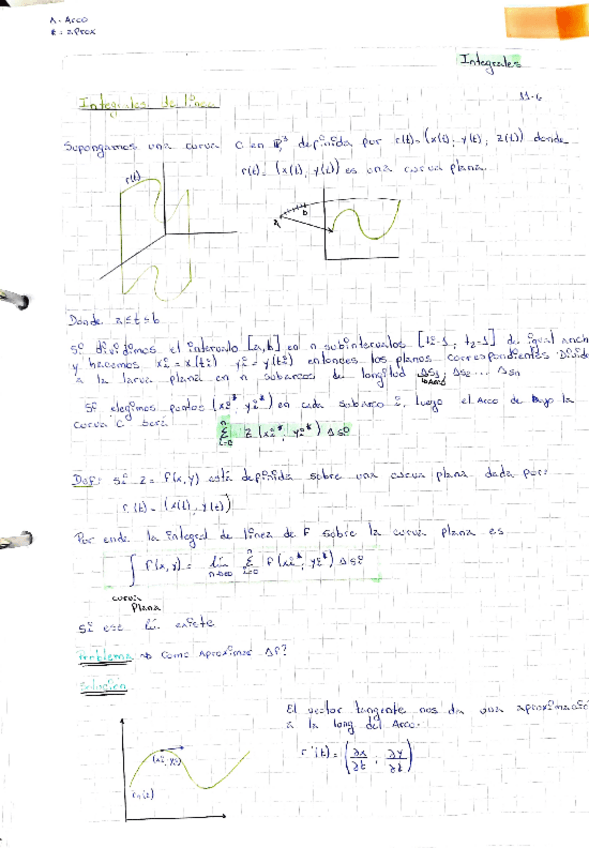 A = Arco
Integrales
Integrales de línea
11-6
Supongamos una curva C en R³ definida por r(t) = (x(t), y(t), z(t)) donde
r(t) = (x(t), y(t)) es una curva plana.
r(t)
a
b
Donde a≤t≤b
Si dividimos el intervalo [a,b] en n subintervalos [ti-1, ti-1] de igual anch
y hacemos xi = x(ti) yi = y(ti) entonces los planos correspondientes Divide
a la curva plana en n subarcos de longitud ΔS1, ΔS2 ... ΔSn
Si elegimos puntos (xi*, yi*) en cada subarco i, luego el Arco de bajo la
curva C será
n
Σ z (xi*, yi*) ΔSi
i=0
Def: Si z = f(x,y) está definida sobre una curva plana dada por:
r(t) = (x(t), y(t))
Por ende la integral de línea de F sobre la curva plana es
∫ f(x,y) = lim Σ f(xi*, yi*) ΔSi
n→∞ i=0
curva
Plana
Si ese lí. existe
Problema ⇒ Como Aproximar ΔS?
Solución
El vector tangente nos da una aproximació
a la long del Arco.
r'(t) = (∂x/∂t, ∂y/∂t)
(xi, yi)